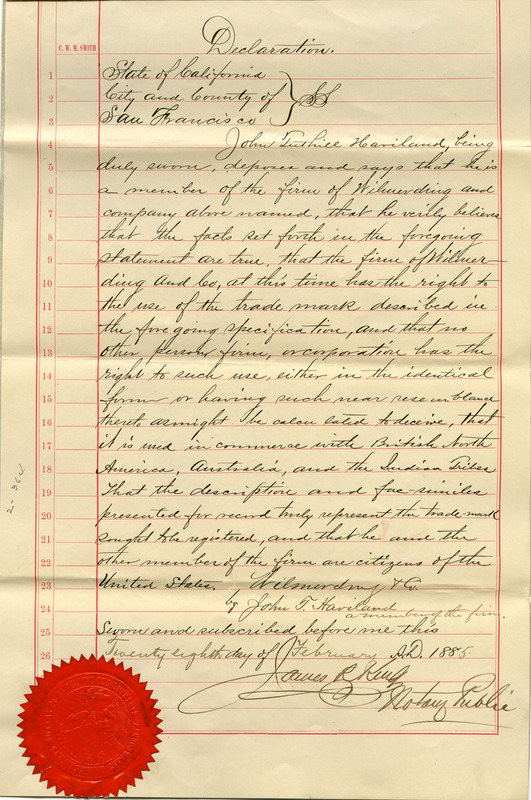 Declaration.
C. W. M. SMITH
1 State of California
2 City and County of } SS
3 San Francisco
4 John Tuthill Haviland, being
5 duly sworn, deposes and says that he is
6 a member of the firm of Wilmerding and
7 company above named, that he verily believes
8 that the facts set forth in the foregoing
9 statement are true, that the firm of Wilmer-
10 ding and Co, at this time has the right to
11 the use of the trade mark described in
12 the foregoing specification, and that no
13 other person, firm, or corporation has the
14 right to such use, either in the identical
15 form or having such near resemblance
16 thereto as might be calculated to deceive, that
17 it is used in commerce with British North
18 America, Australia, and the Indian Tribes
19 That the description and fac-similes
20 presented for record truly represent the trade mark
21 sought to be registered, and that he and the
22 other member of the firm are citizens of the
23 United States. Wilmerding & Co.
24 by John T. Haviland
a member of the firm.
25 Sworn and subscribed before me this
26 Twenty eighth day of February A.D. 1885
James R. King
Notary Public